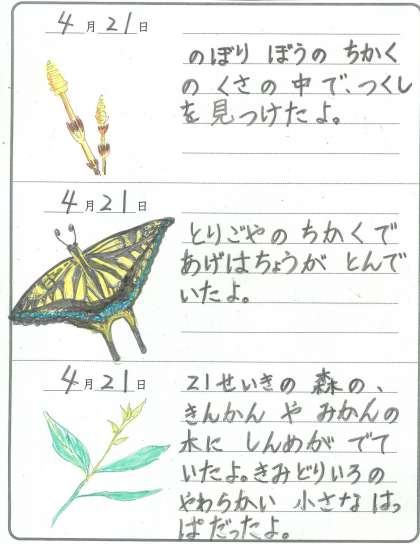 4月21日
のぼり ぼうの ちかく
の くさの 中で、つくし
を 見つけたよ。
4月21日
とりごやの ちかくで
あげはちょうが とんで
いたよ。
4月21日
21せいきの 森の、
きんかん や みかんの
木に しんめが でて
いたよ。きみどりいろの
やわらかい 小さな はっ
ぱだったよ。